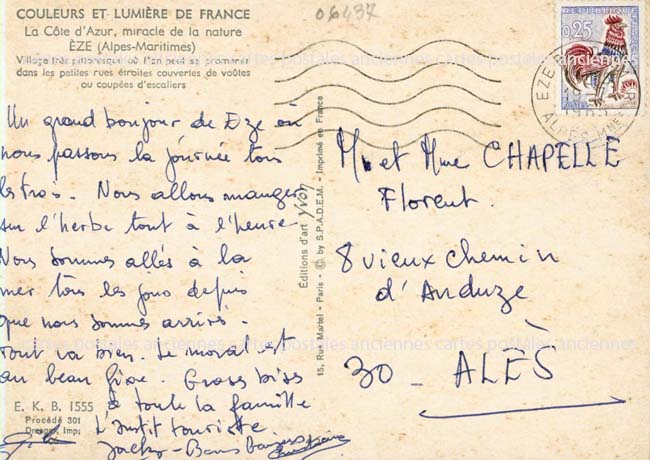 COULEURS ET LUMIÈRE DE FRANCE
La Côte d'Azur, miracle de la nature
ÈZE (Alpes-Maritimes)
Village très pittoresque où l'on peut se promener
dans les petites rues étroites couvertes de voûtes
ou coupées d'escaliers
06437
0,25
EZE
ALPES MMES
Un grand bonjour de Eze où
nous passons la journée tous
les trois. Nous allons manger
sur l'herbe tout à l'heure
Nous sommes allés à la
mer tous les jours depuis
que nous sommes arrivés.
tout va bien. Le moral est
au beau fixe. Grosses bises
à toute la famille
L'instit touriste.
Jacky - Bons Baisers
E. K. B. 1555
Procédé 301
Draeger, Imp.
Éditions d'art Yvon
15, Rue Martel - Paris - © by S.P.A.D.E.M. - Imprimé en France
M. et Mme CHAPELLE
Florent.
8 vieux chemin
d'Anduze
30 - ALÈS
cartes postales anciennes cartes postales anciennes